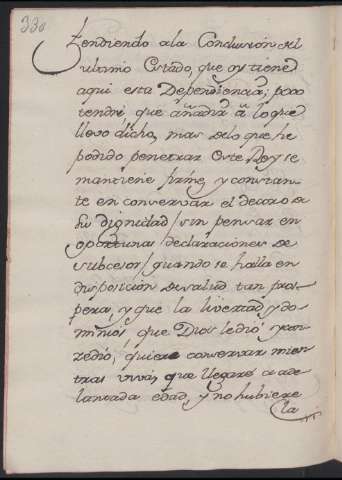 330
tendiendo ala Conclusion del
ultimo Estado, que oy tiene
aqui esta Dependiencia; poco
tendré que añadir à lo que
llevo dicho, mas delo que he
podido penetrar Este Rey se
mantiene firme, y constan-
te en conservar el decoro de
su dignidad / sin pensar en
oportunas declaraciones de
subcesor / quando se halla en
disposicion de salud tan pros-
pera, y que la livertad, y do-
minios, que Dios le dió, y con-
zedió, quiere conservar mien-
tras viva, que llegará a ade-
lantada edad, y no hubiere
la